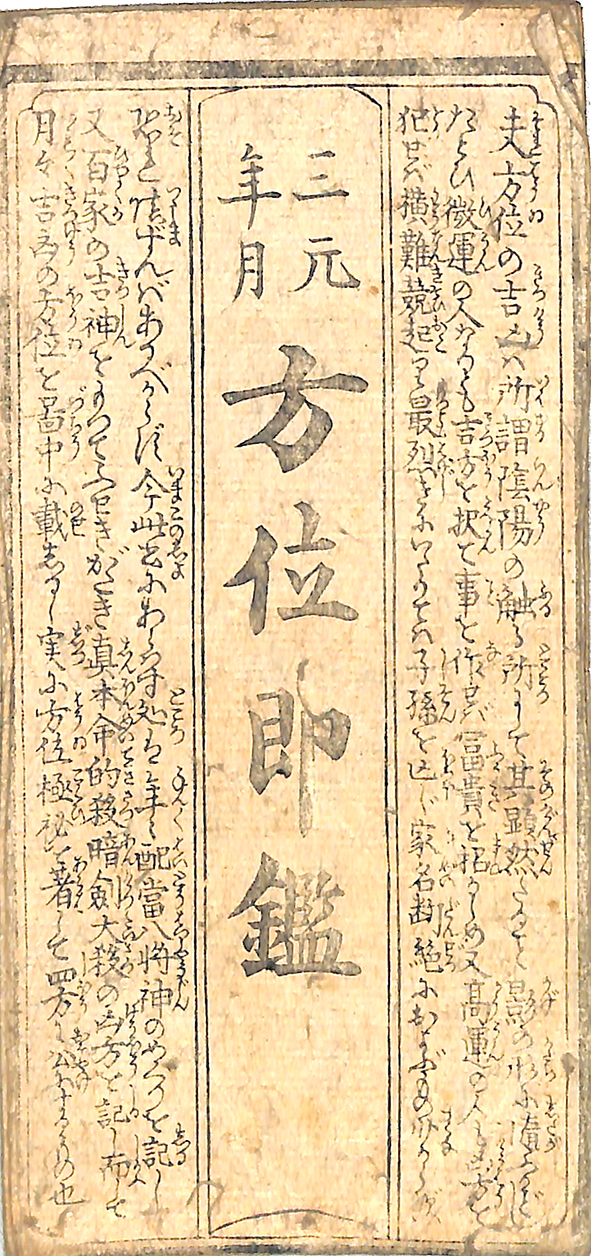 夫方位の吉凶ハ所謂陰陽の触る所にして其顕然たること影の形に随ふがごとし
たとひ微運の人なりとも吉方を択て事を作せバ冨貴を招かしめ又高運の人も凶方を
犯せバ横難競起り最烈きにいたりてハ子孫を亡し家名断絶におよぶもの少からず
三元
年月
方位即鑑
恐れ慎ずんバあるべからず今此書にあらハす処は年々配當八将神のめぐりを記し
又百家の吉神をもつてふせぎがたき真本命的殺暗剣大殺の凶方を記し而して
月々吉凶の方位を啚中に載しるし実に方位極秘を著して四方に公にするもの也